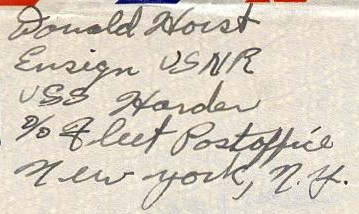 Donald Horst
Ensign USNR
USS Harder
c/o Fleet Postoffice
New York, N.Y.